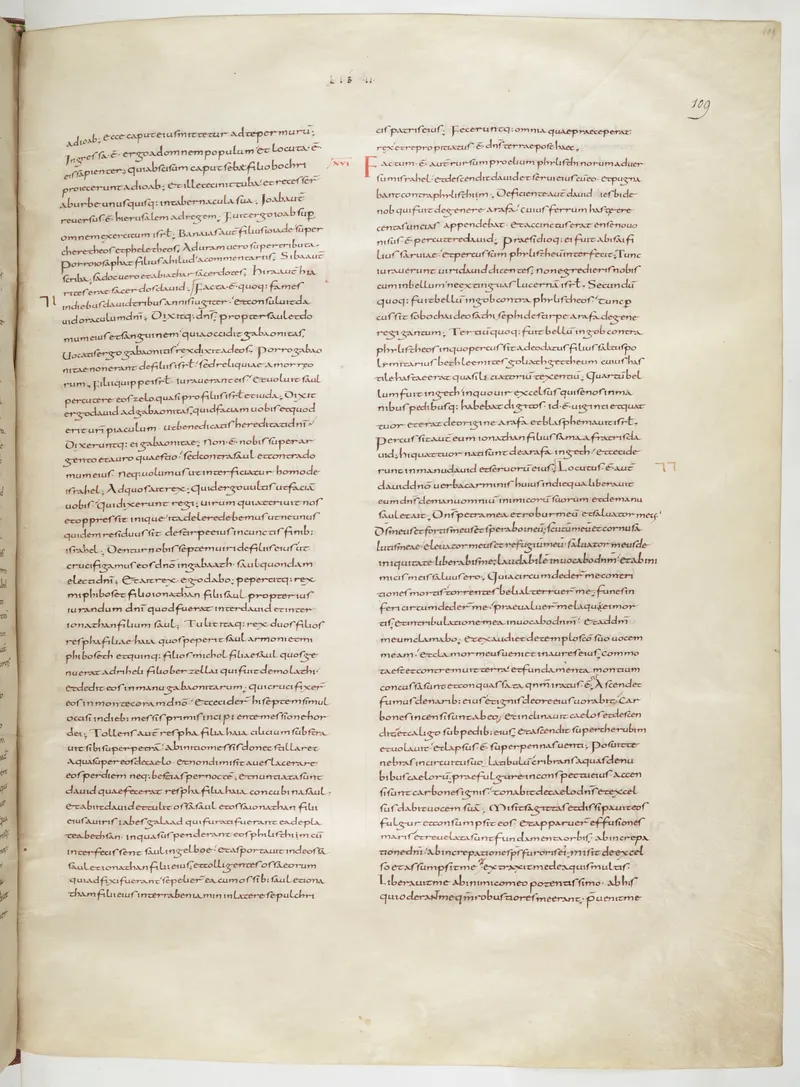 LIB II
109
ad ioab; ecce caput eius mittetur ad te per murū;
Ingressa ē ergo ad omnem populum et locuta ē
eis sapienter; qui abscisum caput seba filio bochri
proiecerunt ad ioab; et ille cecinit tuba et recesser̄
ab urbe unusquisq; in tabernacula sua; Ioab aut̄
reuersus ē hierusalem ad regem; Fuit ergo ioab sup̄
omnem exercitum isrl; Banaias aut̄ filius ioiadae super
cheretheos et pheletheos; Aduram uero super tributa;
porro iosaphat filius ahilud a commentariis; Siba aut̄
scriba; sadoc uero et abiathar sacerdotes; hira aut̄ hia
rites erat sacerdos dauid; Facta ē quoq; fames
in diebus dauid tribus annis iugiter; et consuluit da
uid oraculum dni; Dixitq; dns; propter saul et do
mum eius et sanguinem quia occidit gabaonitas;
Uocatis ergo gabaonitas rex dixit ad eos; Porro gabao
nitae non erant de filiis isrl; sed reliquiae amorreo
rum; Filii quippe isrl iurauerant eis; et uoluit saul
percutere eos zelo quasi pro filiis isrl et iuda; Dixit
ergo dauid ad gabaonitas; quid faciam uobis et quod
erit uri piaculum ut benedicatis hereditati dni;
Dixeruntq; ei gabaonitae; Non ē nobis super ar
gento et auro quaestio; sed contra saul et contra do
mum eius; Neq; uolumus ut interficiatur homo de
israhel; Ad quos ait rex; Quid ergo uultis ut faciā
uobis; Qui dixerunt regi; uirum qui attriuit nos
et oppressit inique ita delere debemus ut ne unus
quidem residuus sit de stirpe eius in cunctis finib;
israhel; Dentur nobis septem uiri de filiis eius ut
crucifigamus eos dno in gabaath saul quondam
electi dni; Et ait rex ego dabo; pepercitq; rex
miphiboseth filio ionathan filii saul propter ius
iurandum dni quod fuerat inter dauid et inter
ionathan filium saul; Tulit itaq; rex duos filios
respha filiae haia quos peperit saul armoni et mi
phiboseth et quinq; filios michol filiae saul quos ge
nuerat adriheli filio berzellai qui fuit de molathi
et dedit eos in manu gabaonitarum; qui crucifixer̄
eos in monte coram dno; Et ceciderr̄ hi septem simul
occisi in diebus messis primis incipiente messione hor
dei; Tollens aut̄ respha filia haia cilicium substra
uit sibi super petrā; Ab initio messis donec stillaret
aqua super eos de caelo; et non dimisit aues lacerare
eos per diem neq; bestias per noctē; et nuntiata sunt
dauid quae fecerat respha filia haia concubina saul;
et abiit dauid et tulit ossa saul et ossa ionathan filii
eius a uiris iabes galaad qui furati fuerant ea de pla
tea bethsan in qua suspenderant eos philisthiim cū
interfecissent saul in gelboe; et asportauit inde ossa
saul et ionathan filii eius; et colligentes ossa eorum
qui adfixi fuerant sepelierr̄ ea cum ossib; saul et iona
than filii eius in terra beniamin in latere sepulchri
cis patris eius; Feceruntq; omnia quae praeceperat
rex et repropitiatus ē dns terrae post haec;
XVI Factum ē aut̄ rursum proelium philisthinorum aduer
sum israhel; et descendit dauid et serui eius cū eo et pugna
bant contra philisthiim; Deficiente aut̄ dauid iesbide
nob qui fuit de genere arafa; cuius ferrum hastae tre
centas uncias appendebat et accinctus erat ense nouo
nisus ē percutere dauid; Praesidioq; ei fuit abisai fi
lius saruiae; et percussum philistheum interfecit; Tunc
iurauerunt uiri dauid dicentes; non egredieris nobis
cum in bellum ne extinguas lucernā isrl; Secundū
quoq; fuit bellum in gob contra philistheos; tunc p
cussit sobochai de osathi seph de stirpe arafa de gene
re gigantum; Tertiū quoq; fuit bellū in gob contra
philistheos in quo percussit adeodatus filius saltus po
lemitarius bethleemites goliath getheum cuius has
tile hastae erat quasi liciatoriū texentiū; Quartū bel
lum fuit in geth in quo uir excelsus qui senos in ma
nibus pedibusq; habebat digitos id ē uiginti et quat
tuor et erat de origine arafa et blasphemauit isrl;
percussit aut̄ eum ionathan filius samaa fratris da
uid; hi quattuor nati sunt de arafa in geth; et cecide
runt in manu dauid et seruorū eius; Locutus ē aut̄
dauid dno uerba carminis huius in die qua liberauit
eum dns de manu omniū inimicorū suorum et de manu
saul et ait; Dns petra mea et robur meū et saluator meus;
Ds meus et fortis meus et sperabo in eū; scutū meū et cornu sa
lutis meae eleuator meus et refugiū meū saluator meus de
iniquitate liberabis me; laudabile inuocabo dnm et ab ini
micis meis saluus ero; Quia circumdederr̄ me contri
tiones mortis torrentes belial terruer̄ me; funes in
feri circumdederr̄ me; praeualuer̄ me laquei mor
tis; et in tribulatione mea inuocabo dnm; et ad dm̄
meum clamabo; et exaudiet de templo scō suo uocem
meam; et clamor meus uenit in aures eius; commo
ta est et contremuit terra; et fundamenta montium
concussa sunt et conquassata qnm iratus ē; Ascendet
fumus de narib; eius et ignis de ore eius uorabit; Car
bones incensi sunt ab eo; et inclinauit caelos et descen
dit; et caligo sub pedib; eius; et ascendit super cherubim
et uolauit; et lapsus ē super pennas uenti; Posuit te
nebras in circuitu suo latibulū cribrans aquas de nu
bibus caelorū; prae fulgure in conspectu eius accen
si sunt carbones ignis; tonabit de caelo dns et excel
sus dabit uocem suā; Misit sagittas et dissipauit eos
fulgur et consumpsit eos et apparuer̄ effusiones
maris et reuelata sunt fundamenta orbis; ab increpa
tione dni; ab increpatione sps furoris ei; misit de excel
so et assumpsit me; et extraxit me de aquis multis;
Liberauit me ab inimico meo potentissimo; ab his
qui oderant me qm robustiores me erant; p̄uenit me